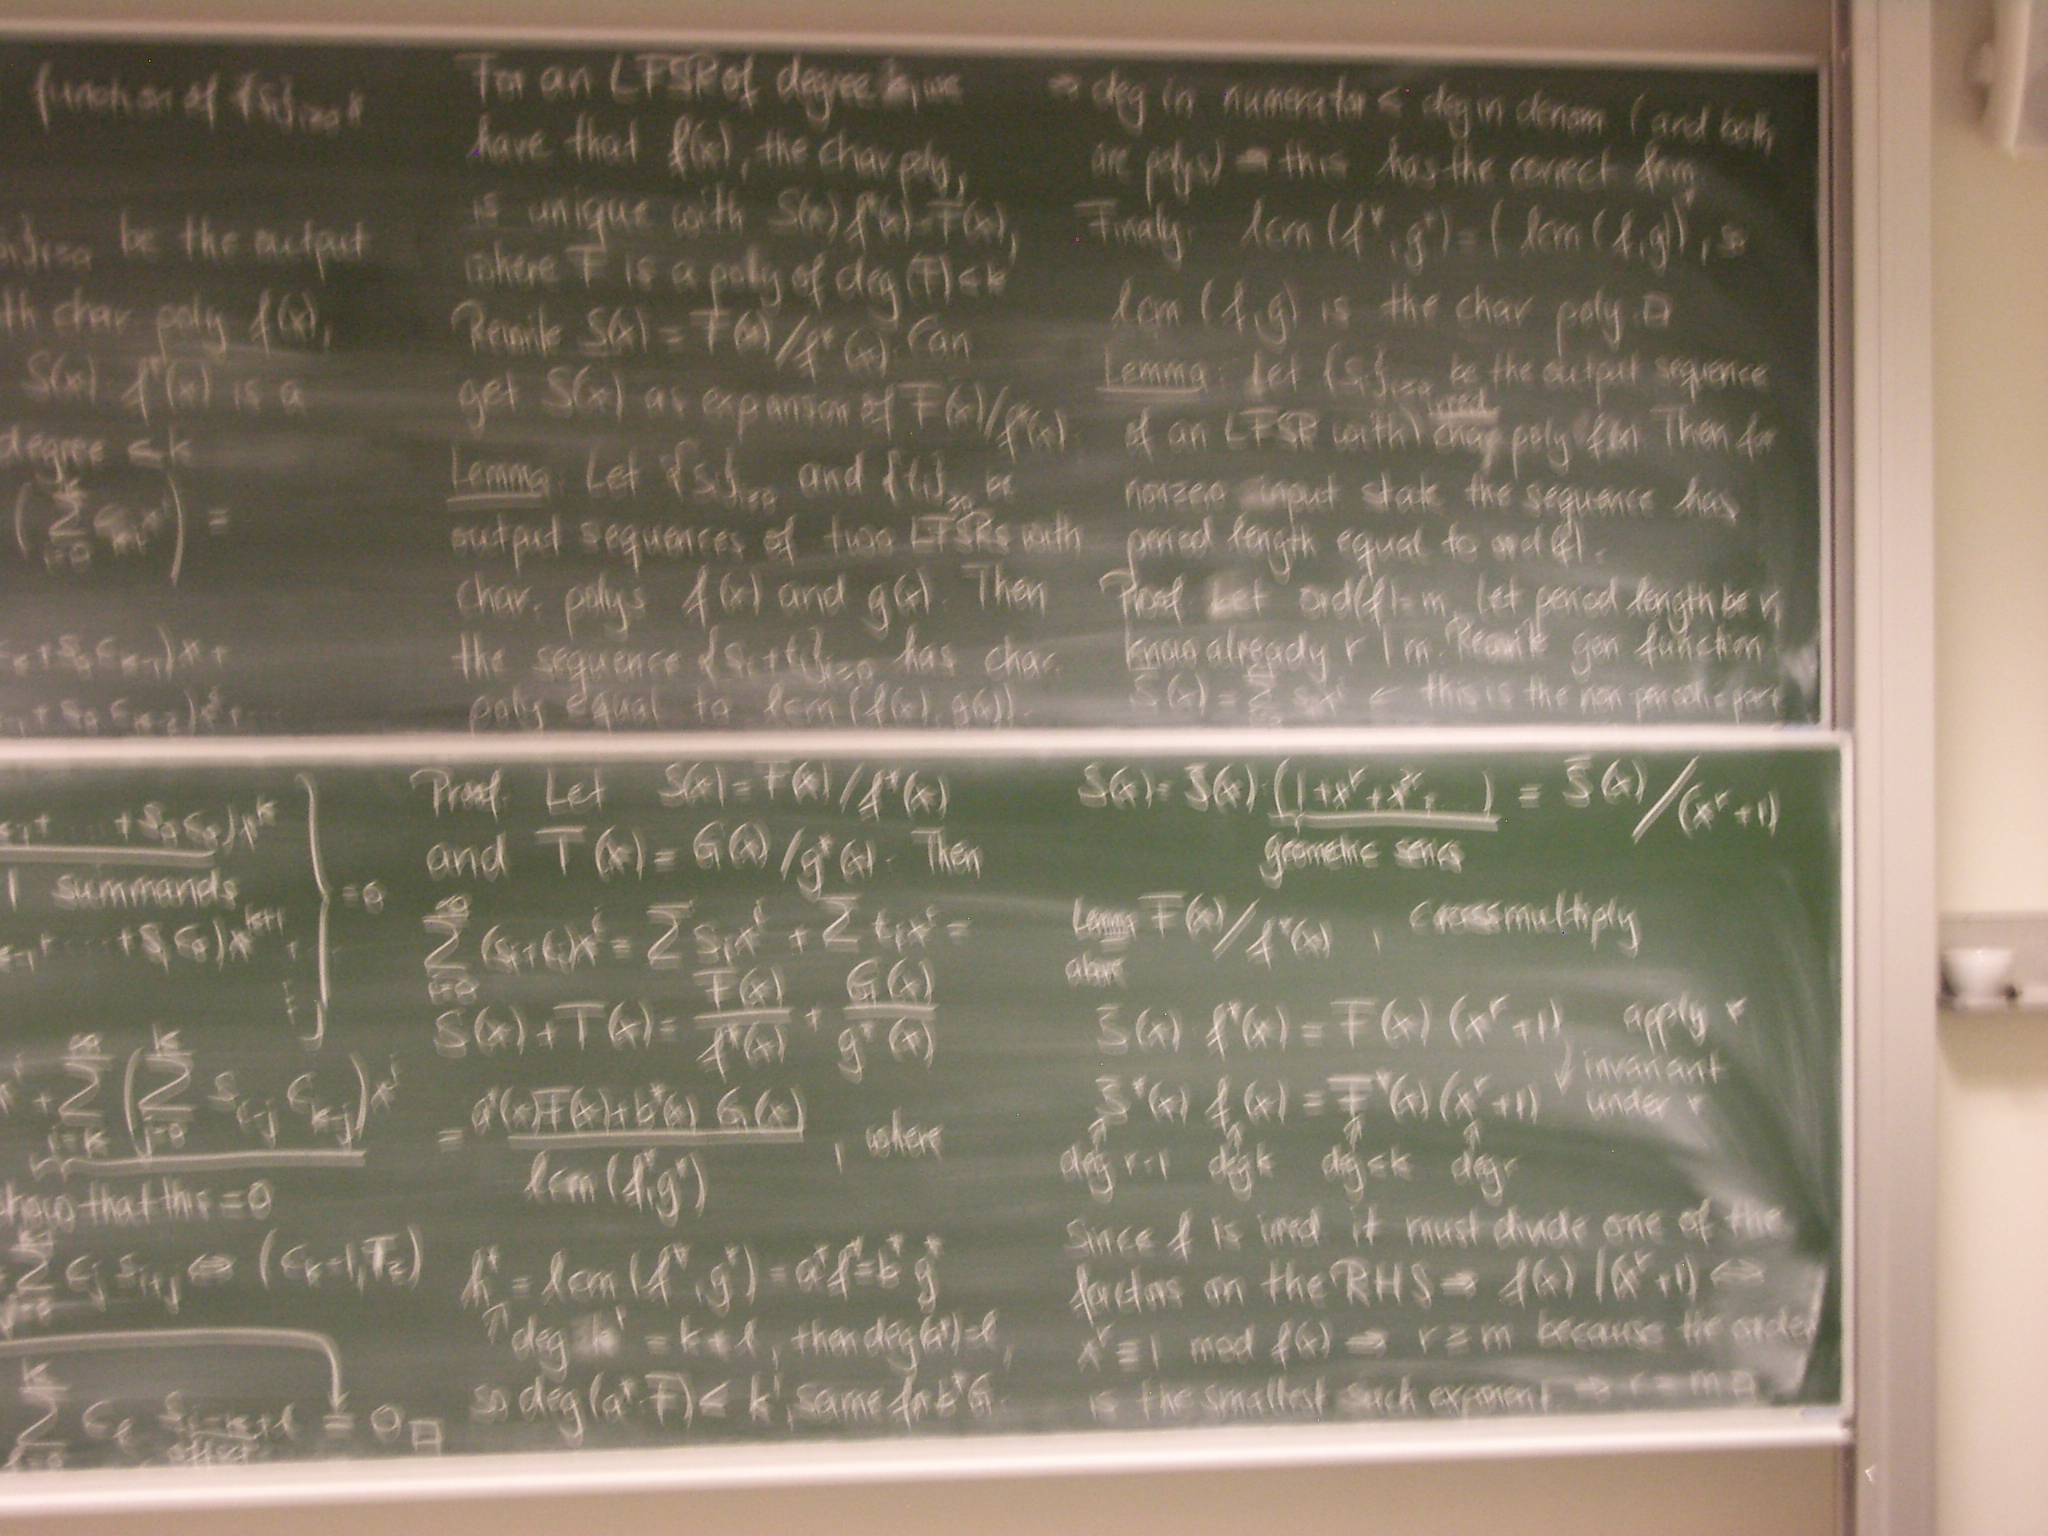 function of {s_i}_{i≥0}
be the output
th char poly f(x),
S(x) · f*(x) is a
degree < k
( \sum_{i=0}^{k} ) =
+ s_0 c_{k-1}) x +
+ s_0 c_{k-2}) x^2 + ...
+ ... + s_0 c_0) x^k
1 summands
+ ... + s_1 c_0) x^{k+1}
= 0
x^i + \sum_{i=k}^{∞} ( \sum_{j=0}^{k} s_{i-j} c_{k-j} ) x^i
show that this = 0
\sum_{j=0} c_j s_{i+j} ⇔ (c_k = 1, F_2)
\sum_{l=0}^{k} c_l s_{i-k+l} = 0 □
offset
For an LFSR of degree k, we
have that f(x), the char poly,
is unique with S(x) f*(x) = F(x),
where F is a poly of deg(F) < k
Rewrite S(x) = F(x) / f*(x). Can
get S(x) as expansion of F(x)/f*(x)
Lemma: Let {s_i}_{i≥0} and {t_i}_{i≥0} be
output sequences of two LFSRs with
char. polys f(x) and g(x). Then
the sequence {s_i + t_i}_{i≥0} has char.
poly equal to lcm (f(x), g(x)).
Proof. Let S(x) = F(x) / f*(x)
and T(x) = G(x) / g*(x). Then
\sum_{i=0}^{∞} (s_i + t_i) x^i = \sum s_i x^i + \sum t_i x^i =
S(x) + T(x) = F(x) / f*(x) + G(x) / g*(x)
= a*(x) F(x) + b*(x) G(x) / lcm (f*, g*) , where
h* = lcm (f*, g*) = a* f* = b* g*
↑ deg = k + l, then deg(a*) = l,
so deg (a* F) < k', same for b* G.
⇒ deg in numerator < deg in denom (and both
are polys) ⇒ this has the correct form
Finally: lcm (f*, g*) = (lcm (f, g))*, so
lcm (f, g) is the char poly. □
Lemma: Let {s_i}_{i≥0} be the output sequence
irred
of an LFSR with char poly f(x). Then for
nonzero input state the sequence has
period length equal to ord(f).
Proof Let ord(f) = m. Let period length be r,
know already r | m. Rewrite gen function
S̄(x) = \sum s_i x^i ← this is the non periodic part
S(x) = S̄(x) · (1 + x^r + x^{2r} + ...) = S̄(x) / (x^r + 1)
geometric series
Lemma F(x) / f*(x) , crossmultiply
above
S̄(x) · f*(x) = F(x) (x^r + 1) apply *
invariant
S̄*(x) f(x) = F*(x) (x^r + 1) under *
deg r-1 deg k deg < k deg r
Since f is irred it must divide one of the
factors on the RHS ⇒ f(x) | (x^r + 1) ⇔
x^r ≡ 1 mod f(x) ⇒ r ≥ m because the order
is the smallest such exponent. ⇒ r = m □